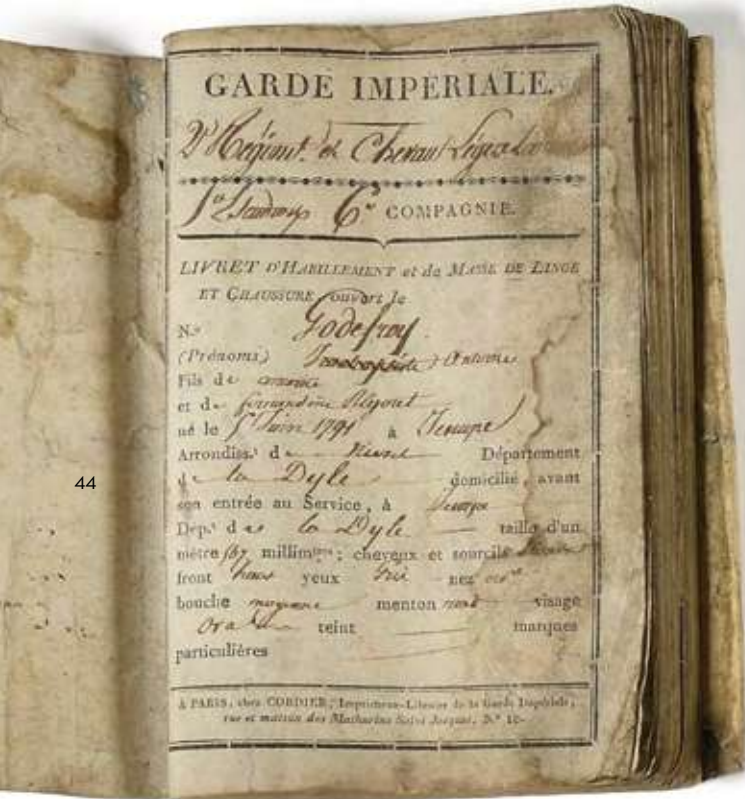 GARDE IMPERIALE.
2e Régimt. de Chevau Légers
6e COMPAGNIE.
LIVRET D'HABILLEMENT et de MASSE DE LINGE
ET CHAUSSURE, ouvert le
N.o Godefroy
(Prénoms) Antoine
Fils de
et de
né le 5 Juin 1791 à Jenape
Arrondiss.t de Département
44
de la Dyle domicilié, avant
son entrée au Service, à
Dép.t de la Dyle taille d'un
mètre 567 millim.tres; cheveux et sourcils
front haut yeux gris nez
bouche moyenne menton rond visage
Ovale teint marques
particulières
A PARIS, chez CORDIER, Imprimeur-Libraire de la Garde Impériale,
rue et maison des Mathurins Saint Jacques, N.o 10.